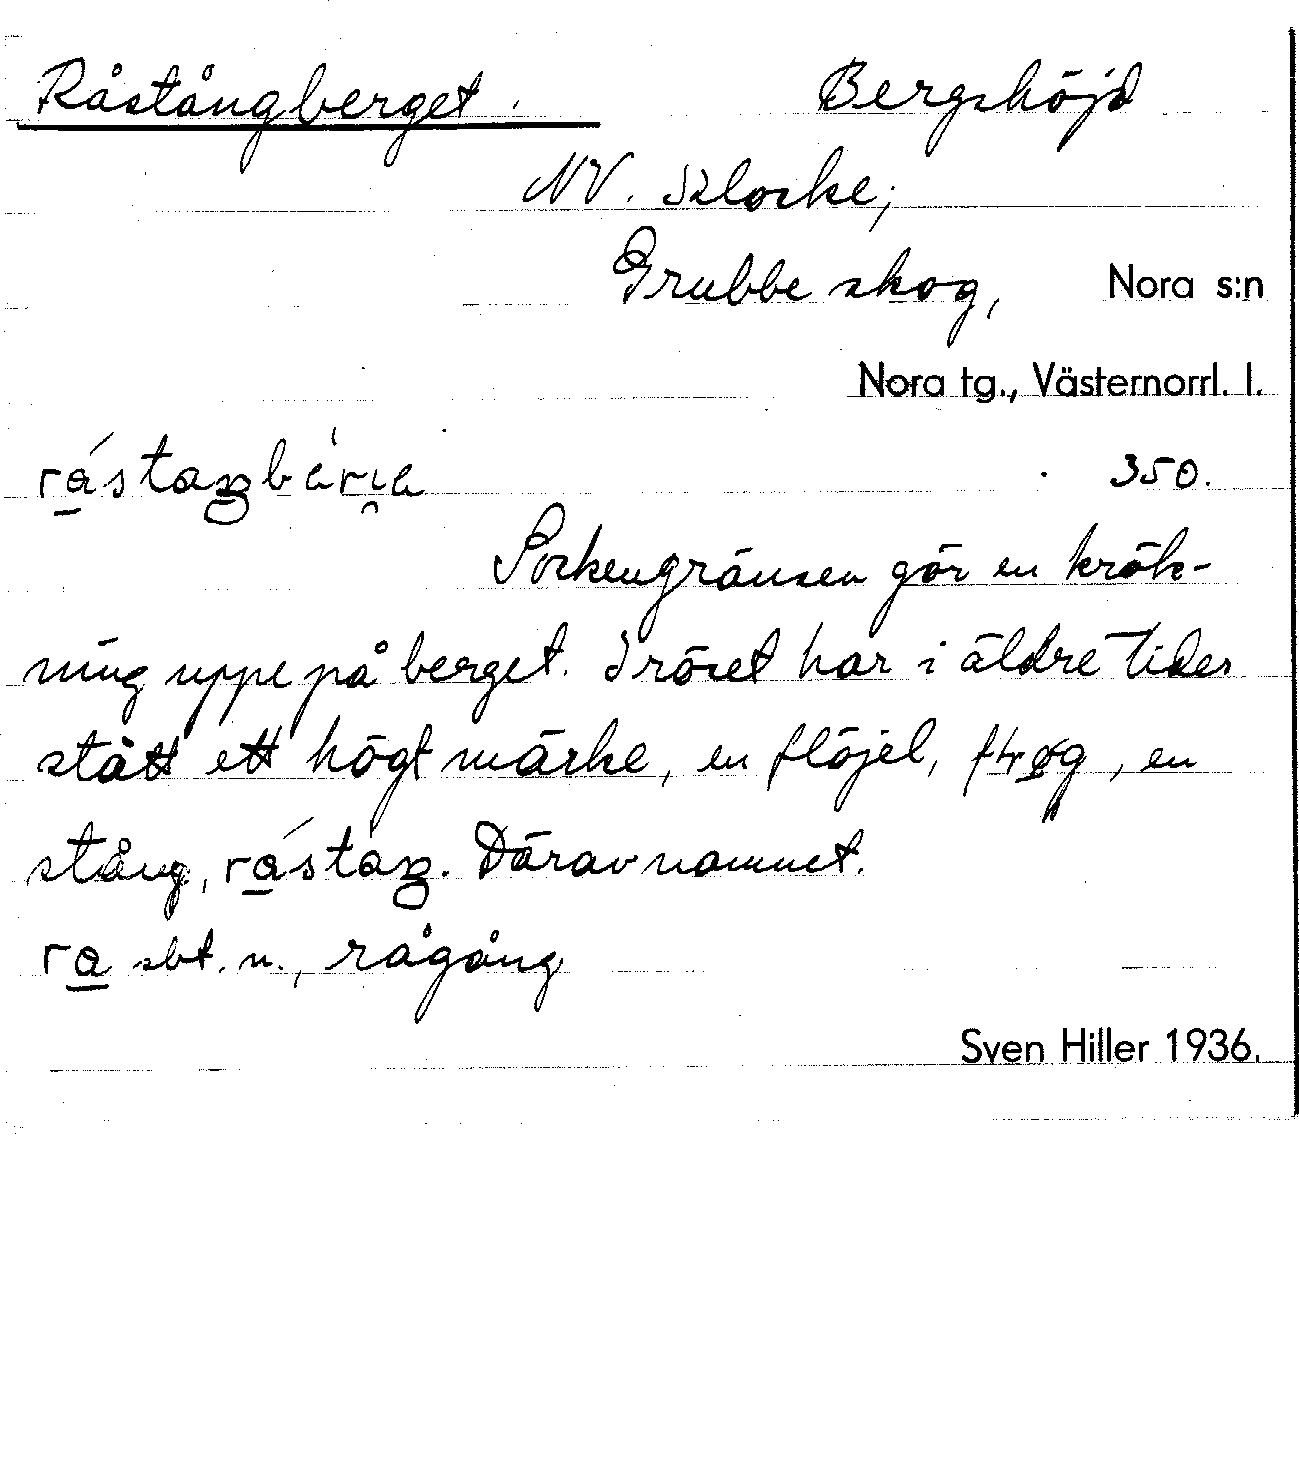 Råstångberget. Bergshöjd
NV. Klocke,
Grubbe skog, Nora s:n
Nora tg., Västernorrl. l.
350.
Sockengränsen gör en krök-
ning uppe på berget. I röset har i äldre tider
stått ett högt märke, en flöjel, en
stång, Därav namnet.
sbt. n., rågång
Sven Hiller 1936.